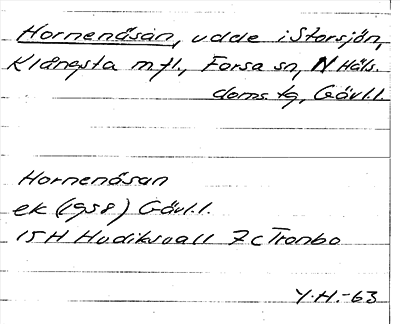 Hornenåsan, udde i Storsjön,
Klångsta m fl., Forsa sn, N Häls.
doms. tg, Gävl.l.
Hornenåsan
ek (1958) Gävl.l.
15H Hudiksvall 7c Trombo
Y.H.-63